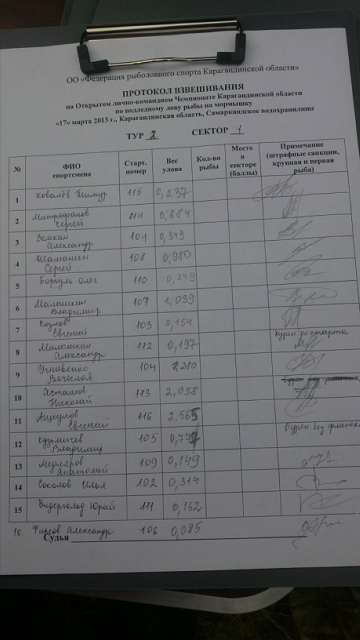 ОО «Федерация рыболовного спорта Карагандинской области»
ПРОТОКОЛ ВЗВЕШИВАНИЯ
на Открытом лично-командном Чемпионате Карагандинской области
по подледному лову рыбы на мормышку
«17» марта 2013 г., Карагандинская область, Самаркандское водохранилище
ТУР 2 СЕКТОР 1
№ ФИО спортсмена Старт. номер Вес улова Кол-во рыбы Место в секторе (баллы) Примечание (штрафные санкции, крупная и первая рыба)
1 Ковалёв Тимур 115 0,237
2 Митрофанов Сергей 114 0,684
3 Зенков Александр 101 0,349
4 Шаманин Сергей 108 0,980
5 Боргуль Олег 110 0,249
6 Малышкин Владимир 107 1,039
7 Козлов Евгений 103 0,154
8 Александр 112 0,197 бурен до старта
9 Вячеслав 104
10 Асташов Николай 113 2,058
11 Евгений 116 2,565 бурен без
12 Кузьмичев Владимир 105
13 Анатолий 109 0,149
14 Соколов Илья 102 0,314
15 Юрий 111 0,162
16. Фирсов Александр 106 0,085
Судья